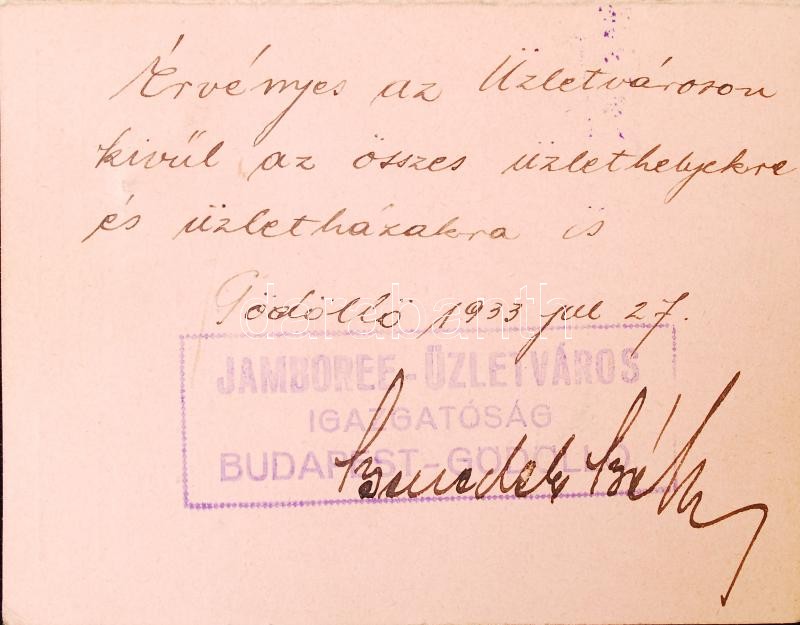 Érvényes az Üzletvároson
kivül az összes üzlethelyekre
és üzletházakra is
Gödöllő 1933 jul 27.
darabanth
JAMBOREE-ÜZLETVÁROS
IGAZGATÓSÁG
BUDAPEST-GÖDÖLLŐ
Benedek